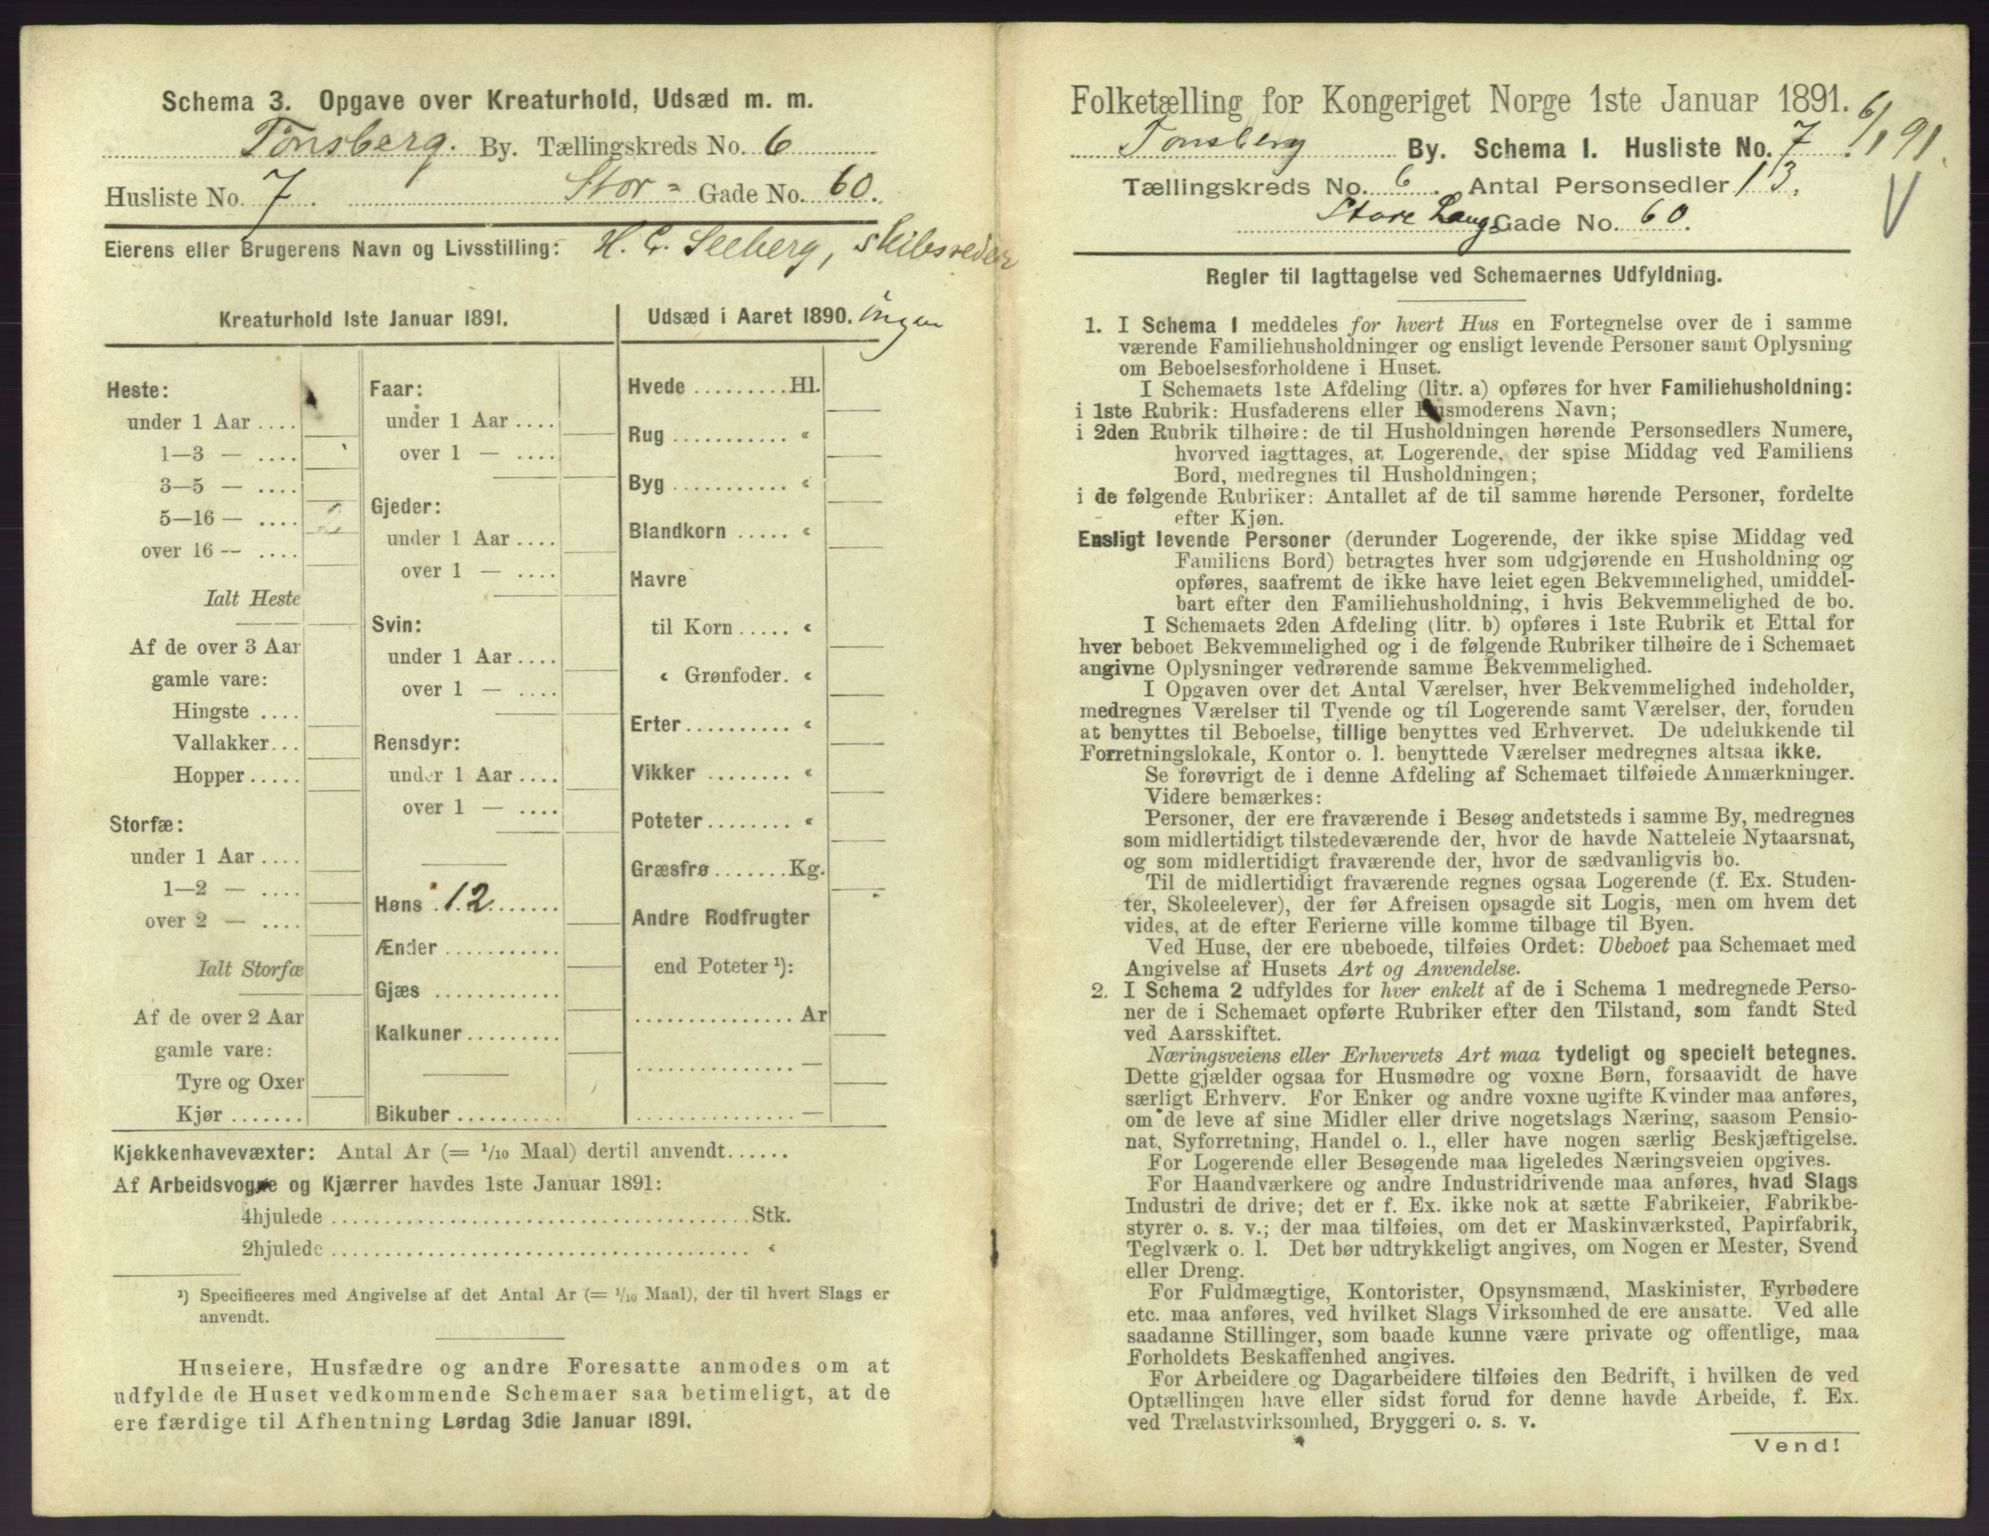 Schema 3. Opgave over Kreaturhold, Udsæd m. m.
Tönsberg. By. Tællingskreds No. 6
Husliste No. 7. Stor= Gade No. 60.
Eierens eller Brugerens Navn og Livsstilling: H. C. Seeberg, skibsreder
Kreaturhold 1ste Januar 1891.
Heste:
under 1 Aar ....
1—3 — ....
3—5 — ....
5—16 — .... 2
over 16 — ....
Ialt Heste
Af de over 3 Aar
gamle vare:
Hingste ....
Vallakker...
Hopper.....
Storfæ:
under 1 Aar ....
1—2 — ....
over 2 — ....
Ialt Storfæ
Af de over 2 Aar
gamle vare:
Tyre og Oxer
Kjør .......
Faar:
under 1 Aar ....
over 1 — ....
Gjeder:
under 1 Aar ....
over 1 — ....
Svin:
under 1 Aar ....
over 1 — ....
Rensdyr:
under 1 Aar ....
over 1 — ....
Høns 12
Ænder ...........
Gjæs ............
Kalkuner.........
Bikuber ..........
Udsæd i Aaret 1890. ingen
Hvede .........Hl.
Rug ........... «
Byg ........... «
Blandkorn ..... «
Havre
til Korn ..... «
« Grønfoder. «
Erter.......... «
Vikker ........ «
Poteter........ «
Græsfrø.......Kg.
Andre Rodfrugter
end Poteter ¹):
............... Ar
............... —
............... —
Kjøkkenhavevæxter: Antal Ar (= 1/10 Maal) dertil anvendt......
Af Arbeidsvogne og Kjærrer havdes 1ste Januar 1891:
4hjulede ....................................... Stk.
2hjulede ....................................... «
¹) Specificeres med Angivelse af det Antal Ar (= 1/10 Maal), der til hvert Slags er
anvendt.
Huseiere, Husfædre og andre Foresatte anmodes om at
udfylde de Huset vedkommende Schemaer saa betimeligt, at de
ere færdige til Afhentning Lørdag 3die Januar 1891.
Folketælling for Kongeriget Norge 1ste Januar 1891.
6/1 91.
Tonsberg By. Schema 1. Husliste No. 7
Tællingskreds No. 6. Antal Personsedler 13.
Store Lang Gade No. 60
Regler til Iagttagelse ved Schemaernes Udfyldning.
1. I Schema 1 meddeles for hvert Hus en Fortegnelse over de i samme
værende Familiehusholdninger og ensligt levende Personer samt Oplysning
om Beboelsesforholdene i Huset.
I Schemaets 1ste Afdeling (litr. a) opføres for hver Familiehusholdning:
i 1ste Rubrik: Husfaderens eller Husmoderens Navn;
i 2den Rubrik tilhøire: de til Husholdningen hørende Personsedlers Numere,
hvorved iagttages, at Logerende, der spise Middag ved Familiens
Bord, medregnes til Husholdningen;
i de følgende Rubriker: Antallet af de til samme hørende Personer, fordelte
efter Kjøn.
Ensligt levende Personer (derunder Logerende, der ikke spise Middag ved
Familiens Bord) betragtes hver som udgjørende en Husholdning og
opføres, saafremt de ikke have leiet egen Bekvemmelighed, umiddel-
bart efter den Familiehusholdning, i hvis Bekvemmelighed de bo.
I Schemaets 2den Afdeling (litr. b) opføres i 1ste Rubrik et Ettal for
hver beboet Bekvemmelighed og i de følgende Rubriker tilhøire de i Schemaet
angivne Oplysninger vedrørende samme Bekvemmelighed.
I Opgaven over det Antal Værelser, hver Bekvemmelighed indeholder,
medregnes Værelser til Tyende og til Logerende samt Værelser, der, foruden
at benyttes til Beboelse, tillige benyttes ved Erhvervet. De udelukkende til
Forretningslokale, Kontor o. l. benyttede Værelser medregnes altsaa ikke.
Se forøvrigt de i denne Afdeling af Schemaet tilføiede Anmærkninger.
Videre bemærkes:
Personer, der ere fraværende i Besøg andetsteds i samme By, medregnes
som midlertidigt tilstedeværende der, hvor de havde Natteleie Nytaarsnat,
og som midlertidigt fraværende der, hvor de sædvanligvis bo.
Til de midlertidigt fraværende regnes ogsaa Logerende (f. Ex. Studen-
ter, Skoleelever), der før Afreisen opsagde sit Logis, men om hvem det
vides, at de efter Ferierne ville komme tilbage til Byen.
Ved Huse, der ere ubeboede, tilføies Ordet: Ubeboet paa Schemaet med
Angivelse af Husets Art og Anvendelse.
2. I Schema 2 udfyldes for hver enkelt af de i Schema 1 medregnede Perso-
ner de i Schemaet opførte Rubriker efter den Tilstand, som fandt Sted
ved Aarsskiftet.
Næringsveiens eller Erhvervets Art maa tydeligt og specielt betegnes.
Dette gjælder ogsaa for Husmødre og voxne Børn, forsaavidt de have
særligt Erhverv. For Enker og andre voxne ugifte Kvinder maa anføres,
om de leve af sine Midler eller drive nogetslags Næring, saasom Pensio-
nat, Syforretning, Handel o. l., eller have nogen særlig Beskjæftigelse.
For Logerende eller Besøgende maa ligeledes Næringsveien opgives.
For Haandværkere og andre Industridrivende maa anføres, hvad Slags
Industri de drive; det er f. Ex. ikke nok at sætte Fabrikeier, Fabrikbe-
styrer o. s. v.; der maa tilføies, om det er Maskinværksted, Papirfabrik,
Teglværk o. l. Det bør udtrykkeligt angives, om Nogen er Mester, Svend
eller Dreng.
For Fuldmægtige, Kontorister, Opsynsmænd, Maskinister, Fyrbødere
etc. maa anføres, ved hvilket Slags Virksomhed de ere ansatte. Ved alle
saadanne Stillinger, som baade kunne være private og offentlige, maa
Forholdets Beskaffenhed angives.
For Arbeidere og Dagarbeidere tilføies den Bedrift, i hvilken de ved
Optællingen have eller sidst forud for denne havde Arbeide, f. Ex.
ved Trælastvirksomhed, Bryggeri o. s. v.
Vend!